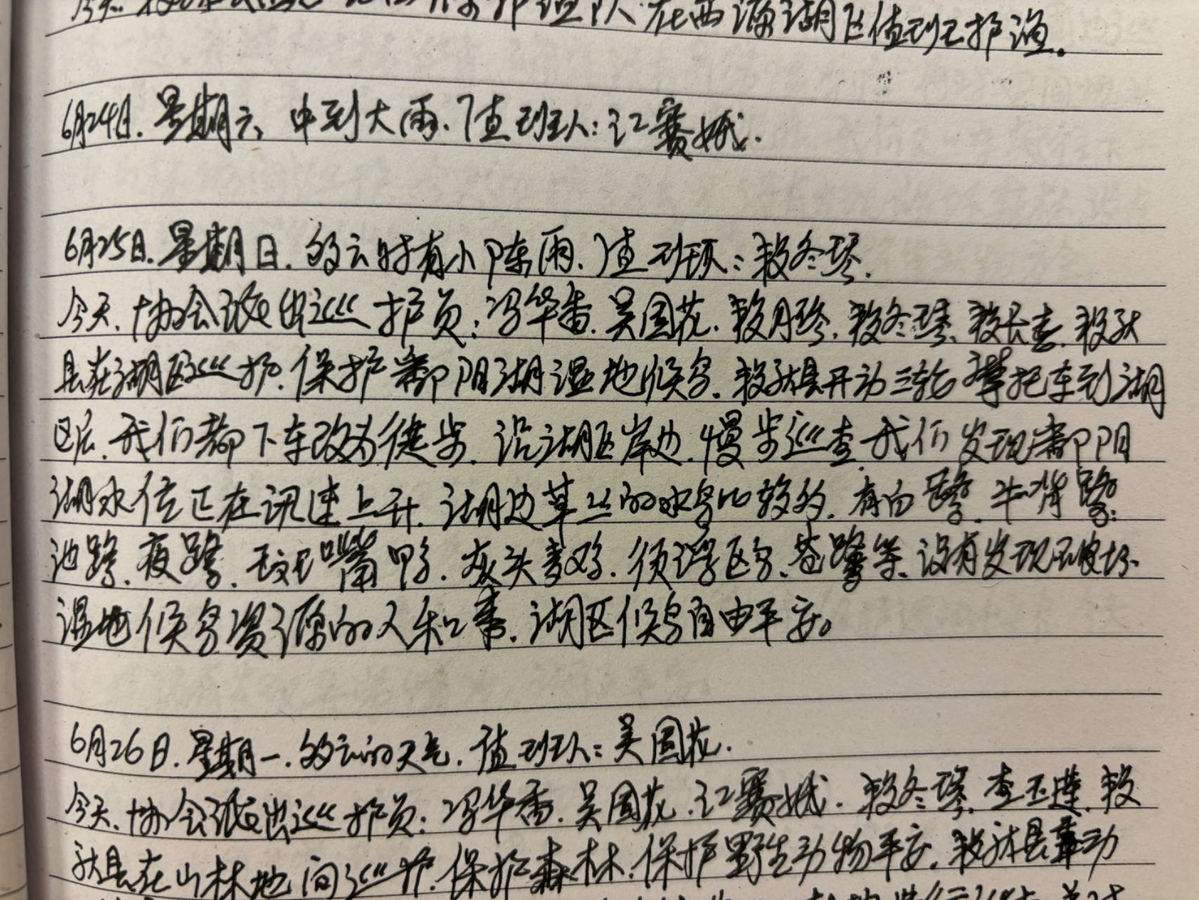 在西源湖区值班护渔。
6月24日.星期六、中到大雨.值班人:江赛娥.
6月25日.星期日.多云时有小阵雨.值班人:段冬琴.
今天.协会派出巡护员:冯华香.吴国花.段月琴.段冬琴.段长春.段
县在湖区巡护.保护鄱阳湖湿地候鸟.段开动三轮摩托车到湖
区后.我们都下车改为徒步.沿湖区岸边.慢步巡查.我们发现鄱阳
湖水位正在讯速上升.湖边草丛的水鸟比较多.有白鹭.牛背鹭.
池鹭.夜鹭.斑嘴鸭.灰头麦鸡.须浮鸥.苍鹭等.没有发现破坏
湿地候鸟资源的人和事.湖区候鸟自由平安。
6月26日.星期一.多云的天气.值班人:吴国花.
今天.协会派出巡护员:冯华香.吴国花.江赛娥.段冬琴.查玉莲.段
在山林地间巡护.保护森林.保护野生动物平安.段